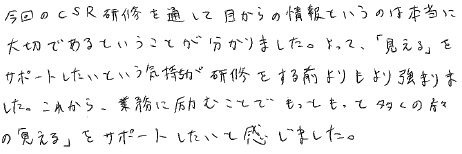 今回のCSR研修を通して目からの情報というのは本当に
大切であるということが分かりました。よって、「見える」を
サポートしたいという気持ちが研修をする前よりもより強まりま
した。これから、業務に励むことでもっともっと多くの方々
の「見える」をサポートしたいと感じました。